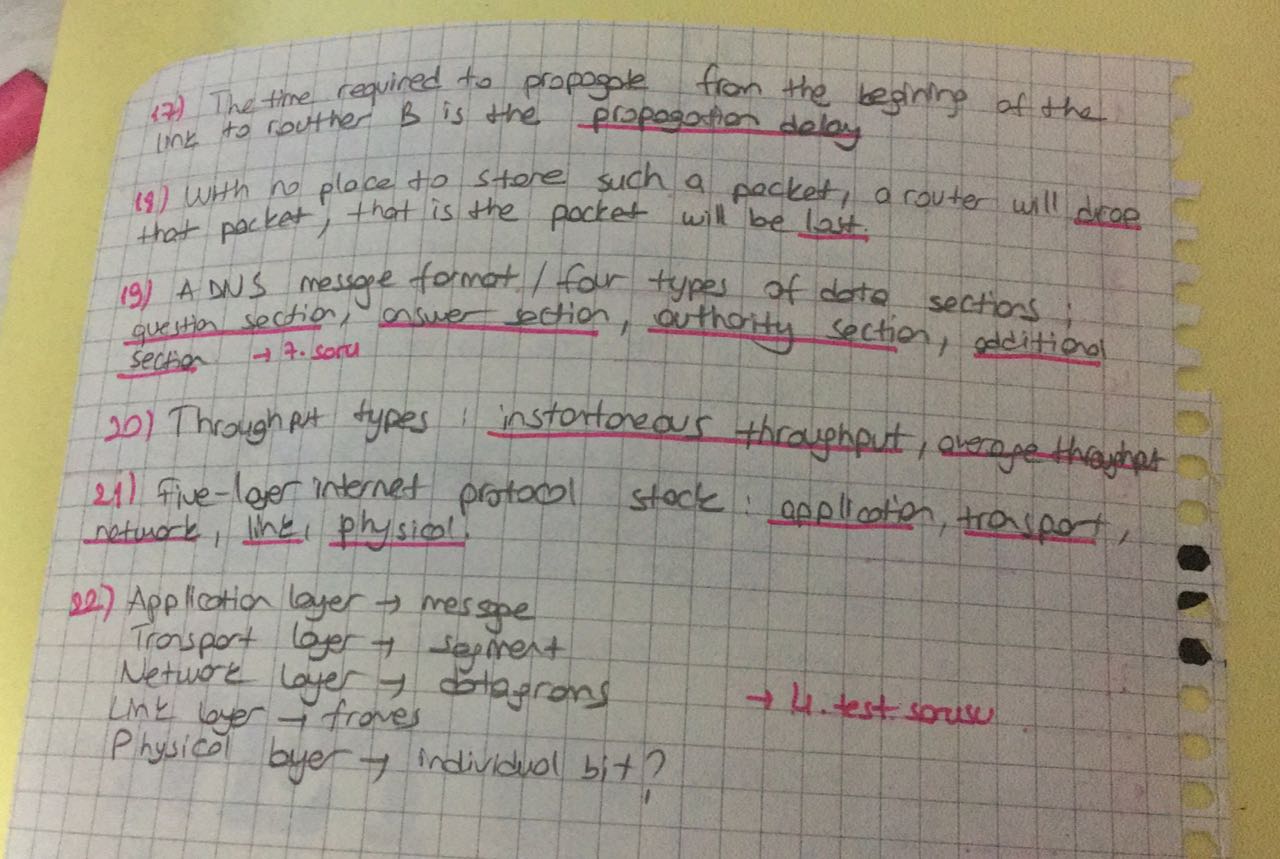 17) The time required to propagate from the begining of the
link to routher B is the propagation delay
18) With no place to store such a packet, a router will drop
that packet, that is the packet will be lost.
19) A DNS message format / four types of data sections ;
question section, answer section, authority section, additional
section → 7. soru
20) Throughput types : instantaneous throughput, average throughput
21) Five-layer internet protocol stack : application, transport,
network, link, physical.
22) Application layer → message
Transport layer → segment
Network layer → datagrams
→ 4. test sorusu
Link layer → frames
Physical layer → individual bit?